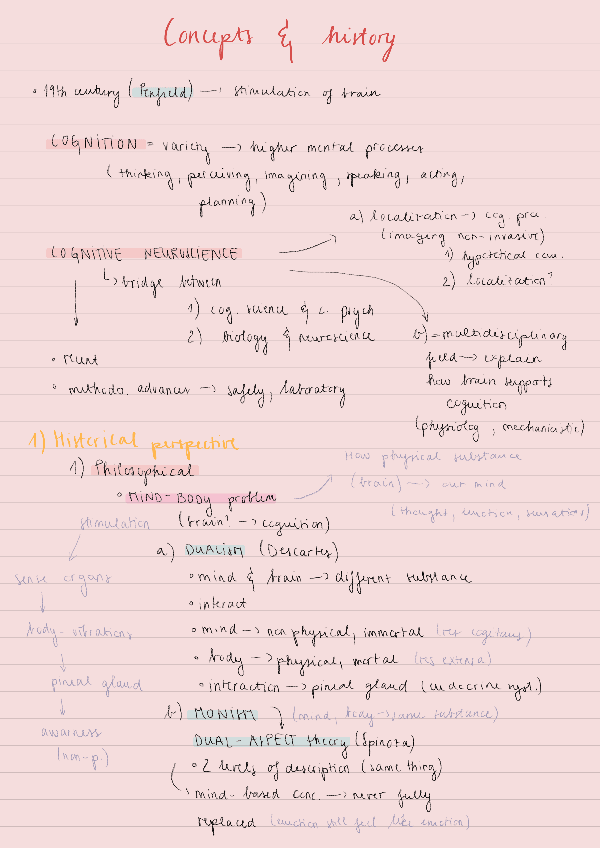 Concepts & history
• 19th century (Penfield) → stimulation of brain
COGNITION = variety → higher mental processes
(thinking, perceiving, imagining, speaking, acting,
planning)
a) localization → cog. proc.
(imaging non-invasive)
1) hypothetical
2) localization
COGNITIVE NEUROSCIENCE
↳ bridge between
1) cog. science & c. psych
2) biology & neuroscience
b) = multidisciplinary
field → explain
how brain supports
cognition
(physiolog, mechanistic)
• recent
• methodo. advances → safely, laboratory
1) Historical perspective
1) Philosophical
• MIND-BODY problem
(brain → cognition)
How physical substance
(brain) → our mind
(thought, emotion, sensations)
stimulation
sense organs
body-vibrations
pineal gland
awarness
(non-p.)
a) DUALISM (Descartes)
• mind & brain → different substance
• interact
• mind → non physical, immortal (res cogitans)
• body → physical, mortal (res extensa)
• interaction → pineal gland (endocrine syst.)
b) MONISM (mind, body → same substance)
DUAL-ASPECT theory (Spinoza)
• 2 levels of description (same thing)
mind-based conc. → never fully
replaced (emotion still feel like emotion)